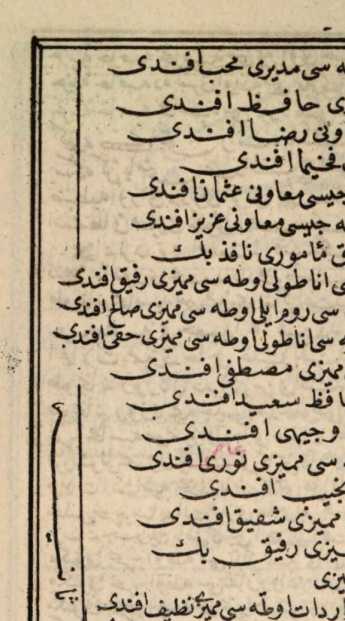 ه سی مدیری محب افندی
ی حافظ افندی
ونی رضا افندی
فخیما افندی
جیسی معاونی عثمان افندی
ه جیسی معاونی عزیز افندی
ق مأموری نافذ بك
ی اناطولی اوطه سی ممیزی رفیق افندی
سی روم ایلی اوطه سی ممیزی صالح افندی
ه سی اناطولی اوطه سی ممیزی حقی افندی
ممیزی مصطفی افندی
افظ سعید افندی
وجیهی افندی
ه سی ممیزی نوری افندی
نجیب افندی
ممیزی شفیق افندی
یزی رفیق بك
یزی
اردات اوطه سی ممیزی نظیف افندی